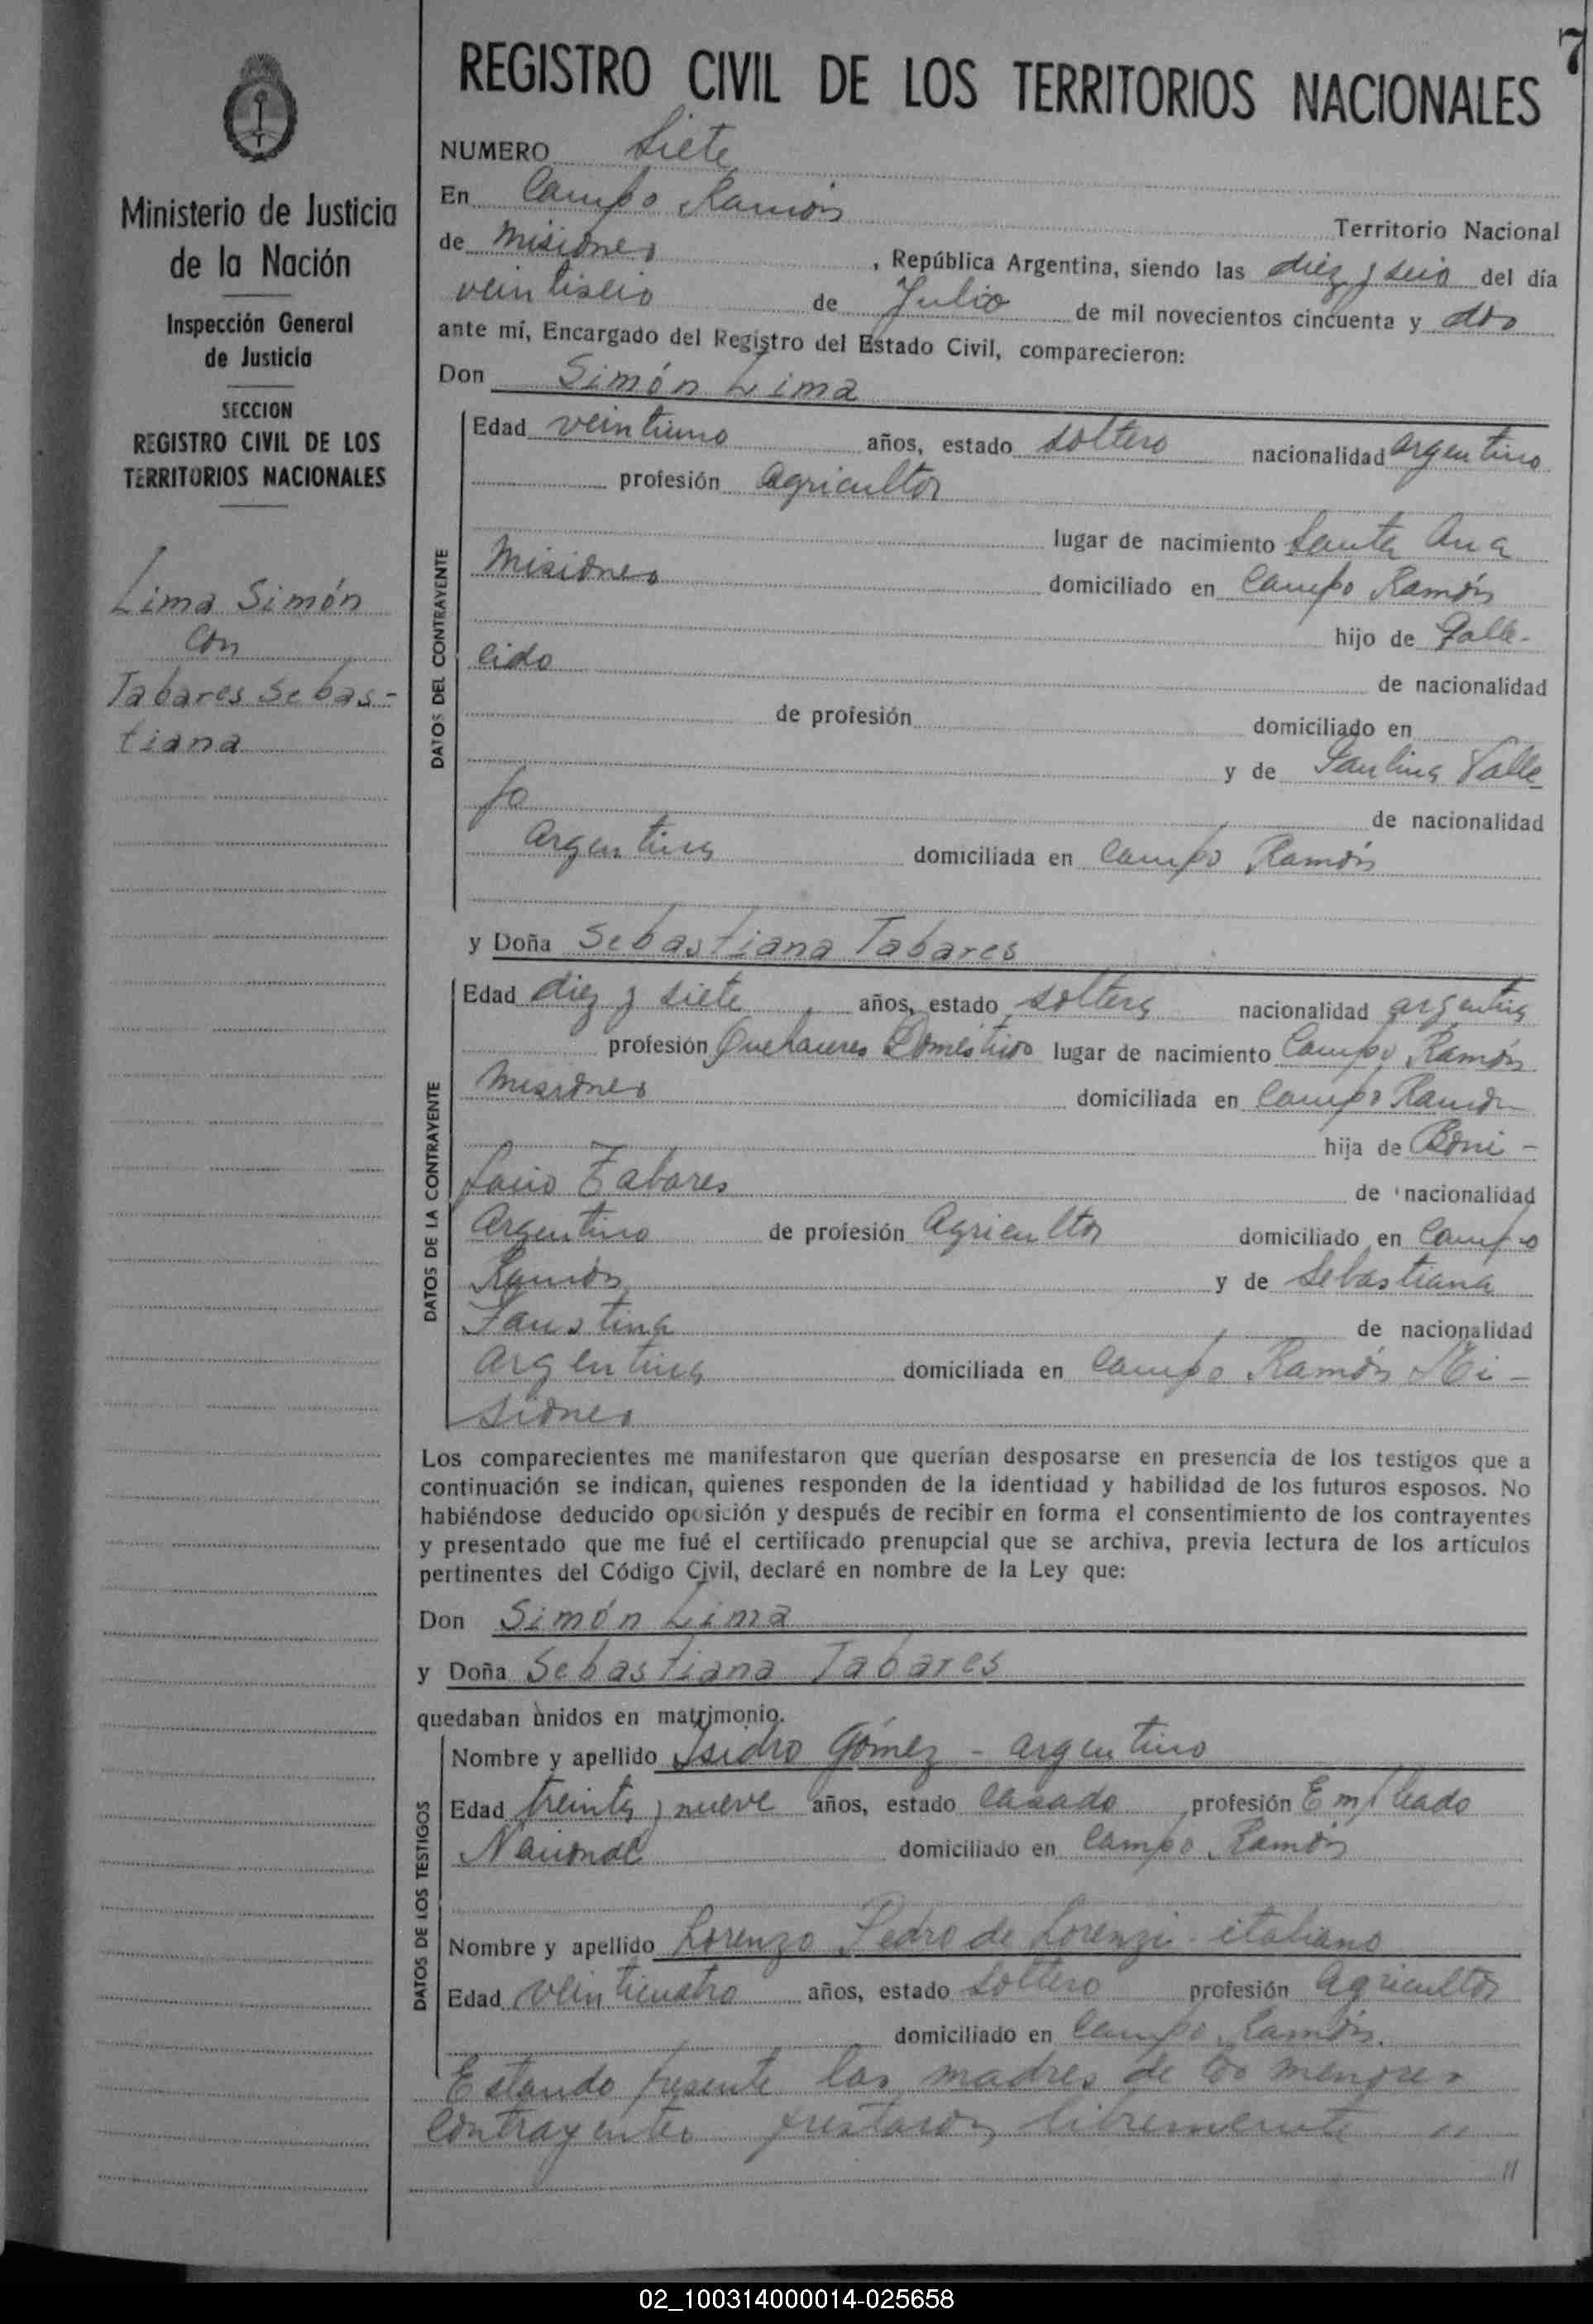 7
REGISTRO CIVIL DE LOS TERRITORIOS NACIONALES
Ministerio de Justicia
de la Nación
Inspección General
de Justicia
SECCION
REGISTRO CIVIL DE LOS
TERRITORIOS NACIONALES
Lima Simón
con
Tabares Sebas-
tiana
NUMERO Siete
En Campo Ramón
Territorio Nacional
de Misiones , República Argentina, siendo las diez y seis del día
veintiseis de Julio de mil novecientos cincuenta y dos
ante mí, Encargado del Registro del Estado Civil, comparecieron:
Don Simón Lima
DATOS DEL CONTRAYENTE
Edad veintiuno años, estado soltero nacionalidad argentino
profesión agricultor
lugar de nacimiento Santa Ana
Misiones domiciliado en Campo Ramón
hijo de Falle-
cido
de nacionalidad
de profesión domiciliado en
y de Paulina Valle
jo
de nacionalidad
argentina domiciliada en Campo Ramón
y Doña Sebastiana Tabares
DATOS DE LA CONTRAYENTE
Edad diez y siete años, estado soltera nacionalidad argentina
profesión Quehaceres Domésticos lugar de nacimiento Campo Ramón
Misiones domiciliada en Campo Ramón
hija de Boni-
facio Tabares de nacionalidad
Argentino de profesión Agricultor domiciliado en Campo
Ramón y de Sebastiana
Faustina de nacionalidad
argentina domiciliada en Campo Ramón Mi-
siones
Los comparecientes me manifestaron que querían desposarse en presencia de los testigos que a
continuación se indican, quienes responden de la identidad y habilidad de los futuros esposos. No
habiéndose deducido oposición y después de recibir en forma el consentimiento de los contrayentes
y presentado que me fué el certificado prenupcial que se archiva, previa lectura de los artículos
pertinentes del Código Civil, declaré en nombre de la Ley que:
Don Simón Lima
y Doña Sebastiana Tabares
quedaban unidos en matrimonio.
DATOS DE LOS TESTIGOS
Nombre y apellido Isidro Gómez - argentino
Edad treinta y nueve años, estado casado profesión Empleado
Nacional domiciliado en Campo Ramón
Nombre y apellido Lorenzo Pedro de Lorenzi - italiano
Edad veinticuatro años, estado soltero profesión agricultor
domiciliado en Campo Ramón.
Estando presente las madres de los menores
contrayentes prestaron libremente "
"
02_100314000014-025658